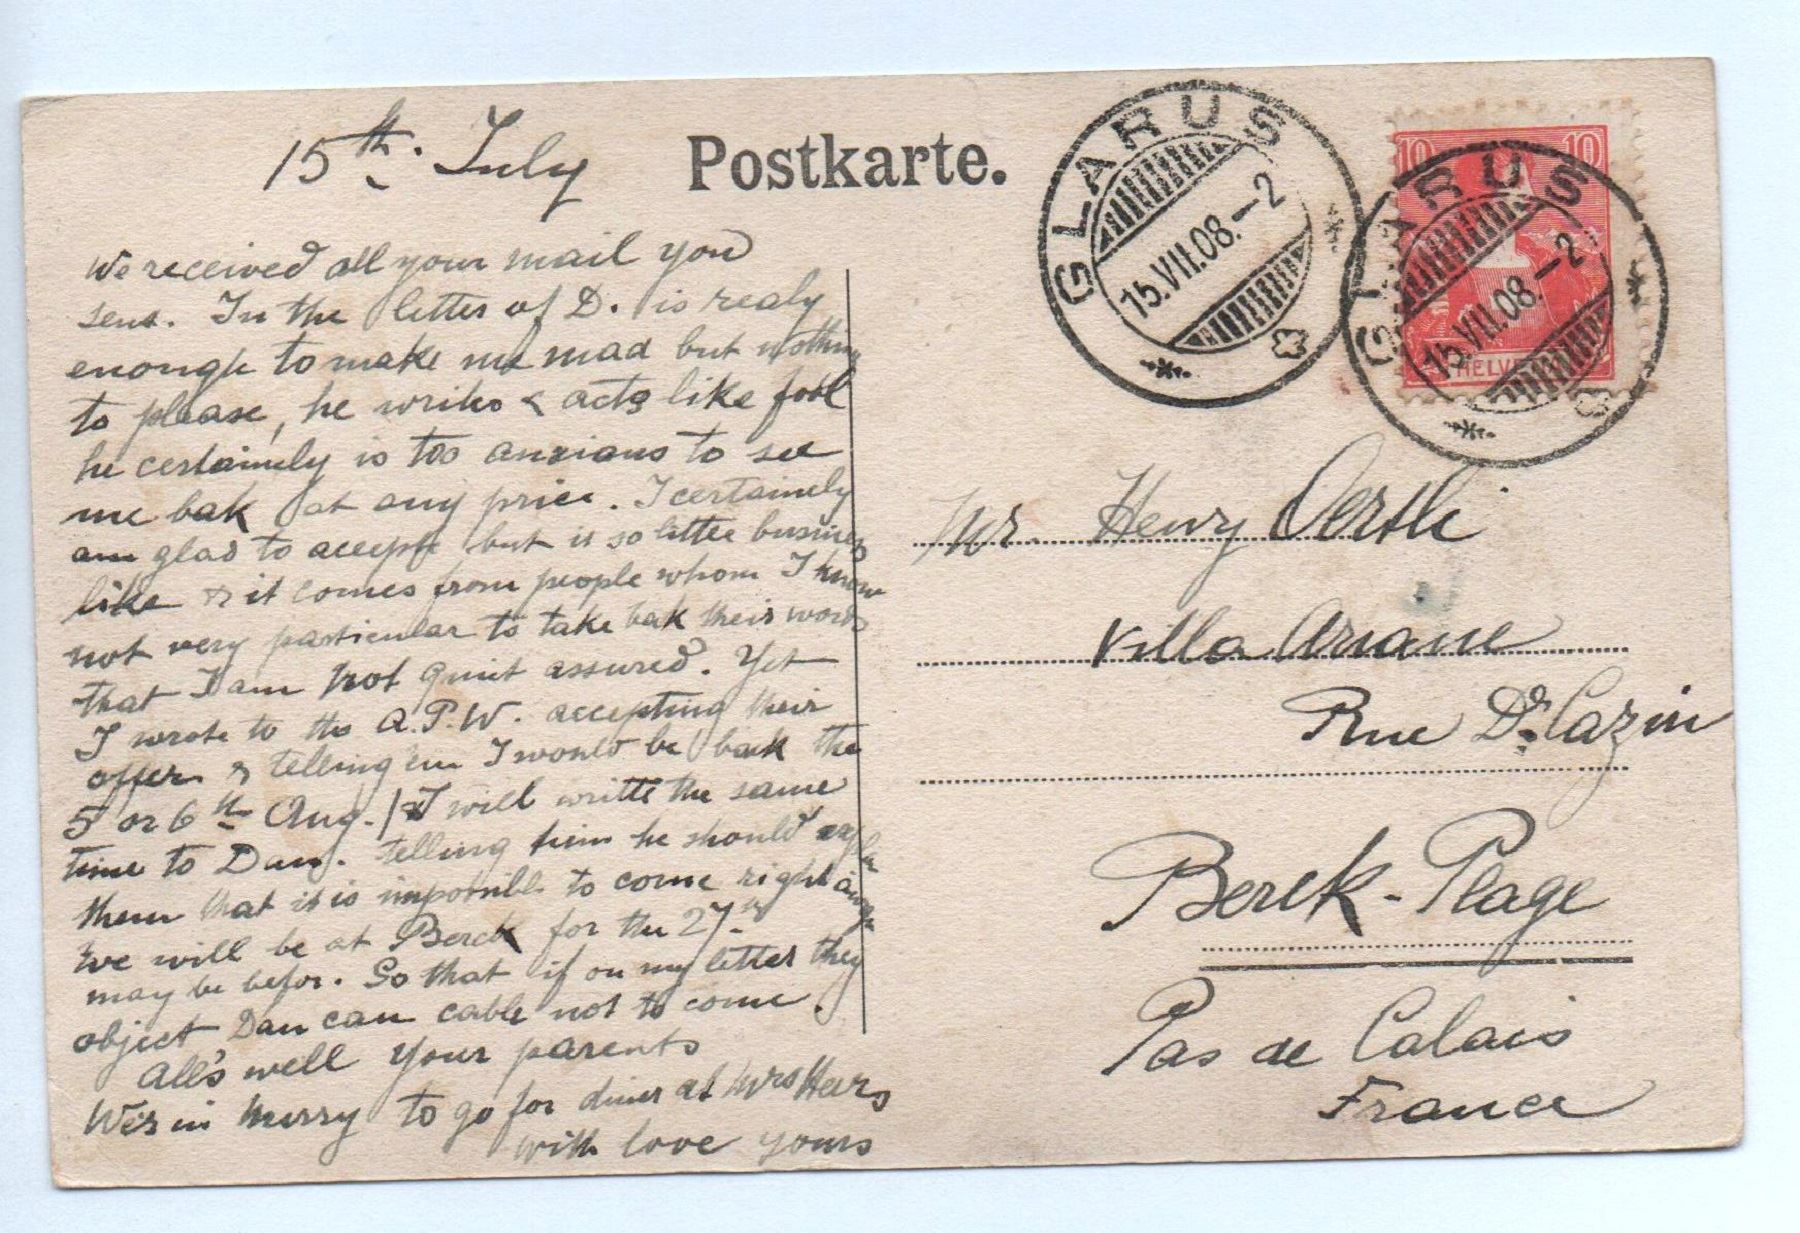 15th. July
Postkarte.
GLARUS
15.VII.08.–2
GLARUS
15.VII.08.–2
10 10
HELVE
We received all your mail you
send. In the letter of D. is realy
enough to make me mad but nothing
to please, he writes & acts like fool
he certainely is too anxious to see
me bak at any price. I certainely
am glad to accept but is so little business
like & it comes from people whom I know
not very particular to take bak their word
that I am not quit assured. Yet
I wrote to the A.P.W. accepting their
offer & telling'em I would be back the
5 or 6th Aug. I will writte the same
time to Dan. telling him he should
them that it is impossible to come right
We will be at Berck for the 27th
may be befor. So that if on my letter they
object Dan can cable not to come.
All's well your parents
We's in hurry to go for diner at Mrs Heers
with love yours
Mr. Henry Oertli
Villa Ariane
Rue Dr. Cazin
Berck-Plage
Pas de Calais
France